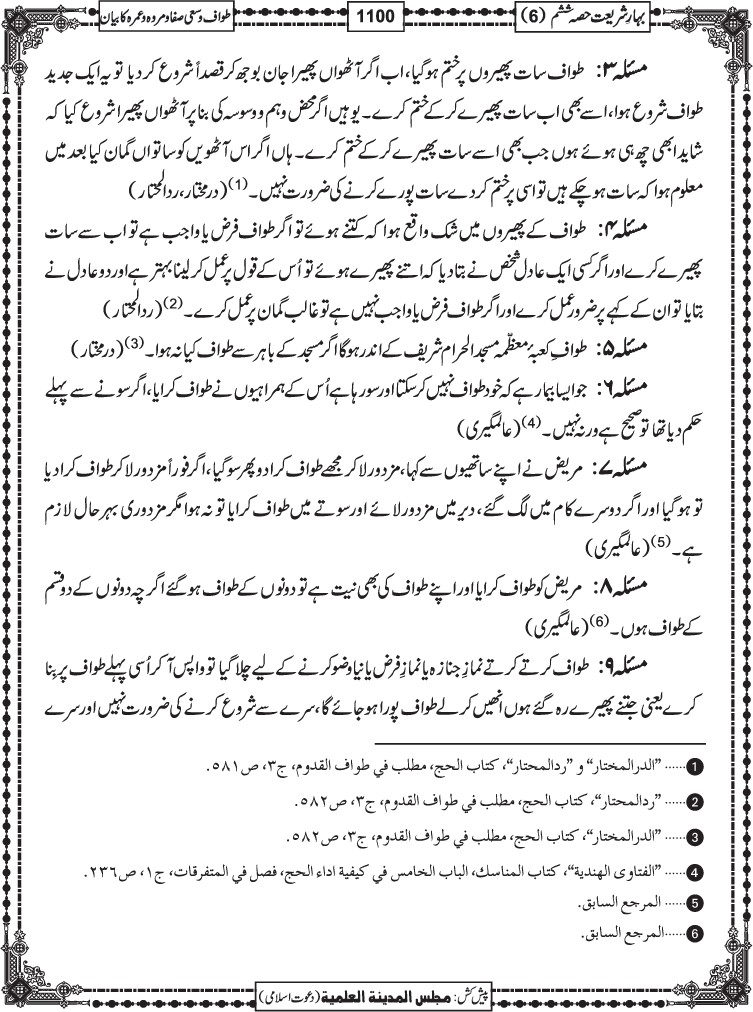 بہار شریعت حصہ ششم (6)
1100
طواف وسعی صفا و مروہ و عمرہ کا بیان
مسئلہ ۳: طواف سات پھیروں پر ختم ہوگیا، اب اگر آٹھواں پھیرا جان بوجھ کر قصداً شروع کر دیا تو یہ ایک جدید
طواف شروع ہوا، اسے بھی اب سات پھیرے کرکے ختم کرے۔ یوہیں اگر محض وہم و وسوسہ کی بنا پر آٹھواں پھیرا شروع کیا کہ
شاید ابھی چھ ہی ہوئے ہوں جب بھی اسے سات پھیرے کرکے ختم کرے۔ ہاں اگر اس آٹھویں کو ساتواں گمان کیا بعد میں
معلوم ہوا کہ سات ہو چکے ہیں تو اسی پر ختم کردے سات پورے کرنے کی ضرورت نہیں۔ (1) (درمختار، ردالمحتار)
مسئلہ ۴: طواف کے پھیروں میں شک واقع ہوا کہ کتنے ہوئے تو اگر طواف فرض یا واجب ہے تو اب سے سات
پھیرے کرے اور اگر کسی ایک عادل شخص نے بتا دیا کہ اتنے پھیرے ہوئے تو اُس کے قول پر عمل کر لینا بہتر ہے اور دو عادل نے
بتایا تو ان کے کہے پر ضرور عمل کرے اور اگر طواف فرض یا واجب نہیں ہے تو غالب گمان پر عمل کرے۔ (2) (ردالمحتار)
مسئلہ ۵: طوافِ کعبۂ معظّمہ مسجد الحرام شریف کے اندر ہوگا اگر مسجد کے باہر سے طواف کیا نہ ہوا۔ (3) (درمختار)
مسئلہ ۶: جو ایسا بیمار ہے کہ خود طواف نہیں کرسکتا اور سو رہا ہے اُس کے ہمراہیوں نے طواف کرایا، اگر سونے سے پہلے
حکم دیا تھا تو صحیح ہے ورنہ نہیں۔ (4) (عالمگیری)
مسئلہ ۷: مریض نے اپنے ساتھیوں سے کہا، مزدور لا کر مجھے طواف کرا دو پھر سو گیا، اگر فوراً مزدور لا کر طواف کرا دیا
تو ہو گیا اور اگر دوسرے کام میں لگ گئے، دیر میں مزدور لائے اور سوتے میں طواف کرایا تو نہ ہوا مگر مزدوری بہر حال لازم
ہے۔ (5) (عالمگیری)
مسئلہ ۸: مریض کو طواف کرایا اور اپنے طواف کی بھی نیت ہے تو دونوں کے طواف ہوگئے اگرچہ دونوں کے دو قسم
کے طواف ہوں۔ (6) (عالمگیری)
مسئلہ ۹: طواف کرتے کرتے نمازِ جنازہ یا نمازِ فرض یا نیا وضو کرنے کے لیے چلا گیا تو واپس آکر اُسی پہلے طواف پر بِنا
کرے یعنی جتنے پھیرے رہ گئے ہوں انھیں کرلے طواف پورا ہو جائے گا، سرے سے شروع کرنے کی ضرورت نہیں اور سرے
1 ...... "الدرالمختار" و "ردالمحتار"، کتاب الحج، مطلب في طواف القدوم، ج۳، ص۵۸۱.
2 ...... "ردالمحتار"، کتاب الحج، مطلب في طواف القدوم، ج۳، ص۵۸۲.
3 ...... "الدرالمختار"، کتاب الحج، مطلب في طواف القدوم، ج۳، ص۵۸۲.
4 ...... "الفتاوی الهندية"، کتاب المناسك، الباب الخامس في كيفية اداء الحج، فصل في المتفرقات، ج۱، ص۲۳۶.
5 ...... المرجع السابق.
6 ......المرجع السابق.
پیش کش: مجلس المدينة العلمية (دعوت اسلامی)